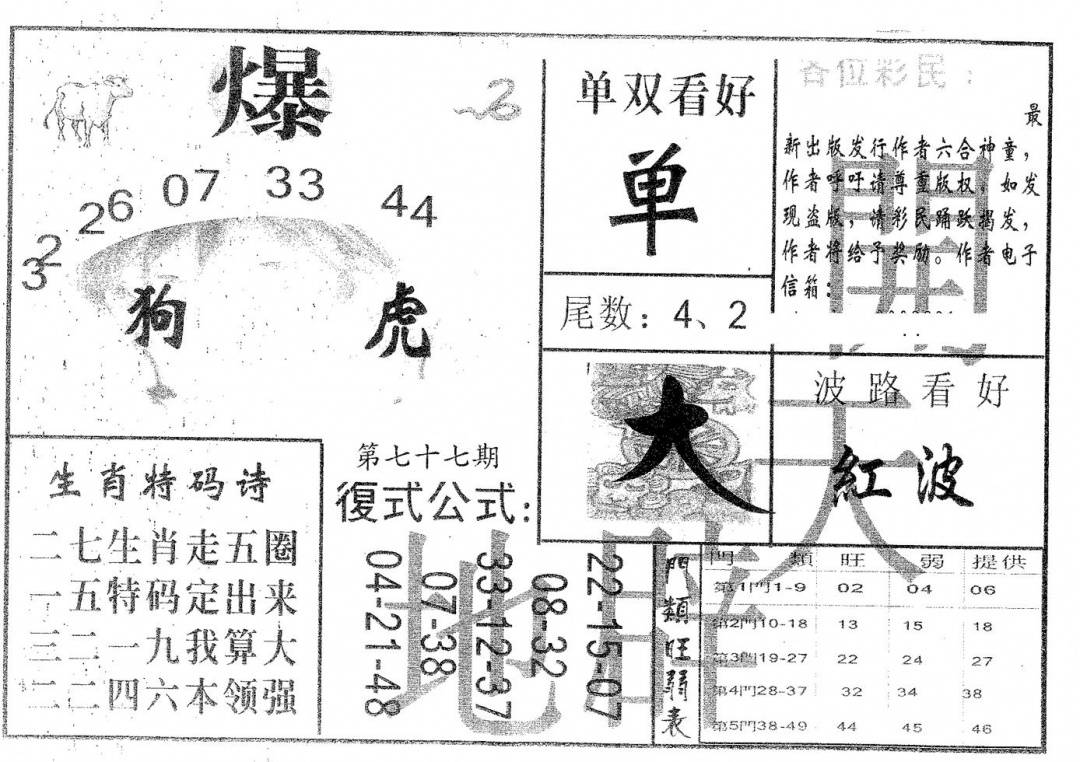 爆
32 26 07 33 44
狗 虎
单双看好
单
尾数：4、2
各位彩民：
最
新出版发行作者六合神童，
作者呼吁请尊重版权，如发
现盗版，请彩民踊跃揭发，
作者将给予奖励。作者电子
信箱：
大
波路看好
紅波
生肖特码诗
二七生肖走五圈
一五特码定出来
三二一九我算大
二二四六本领强
第七十七期
復式公式：
22-15-07
08-32
33-12-37
07-38
04-21-48
門類旺弱表
門類 旺 弱 提供
第1門1-9 02 04 06
第2門10-18 13 15 18
第3門19-27 22 24 27
第4門28-37 32 34 38
第5門38-49 44 45 46